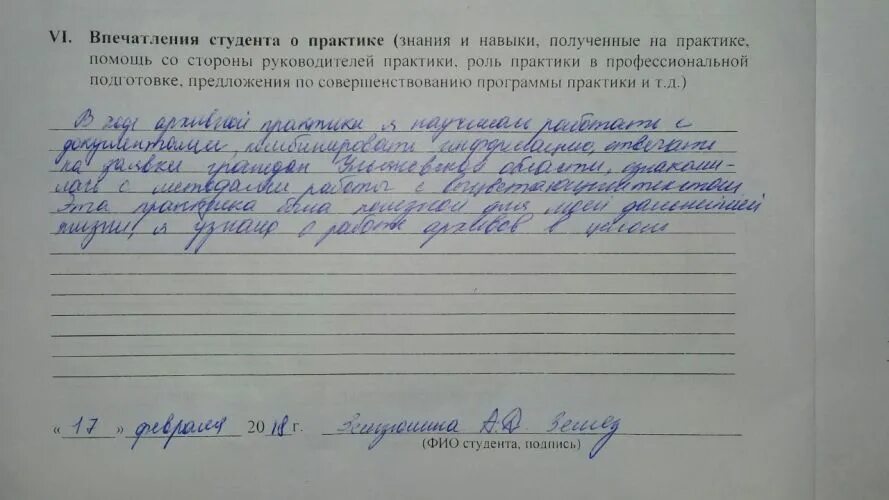 VI. Впечатления студента о практике (знания и навыки, полученные на практике,
помощь со стороны руководителей практики, роль практики в профессиональной
подготовке, предложения по совершенствованию программы практики и т.д.)
В ходе архивной практики я научилась работать с
документами, комбинировать информацию, отвечать
на заявки граждан Ульяновской области, ознакоми-
лась с методами работы с текстом
Эта практика была полезной для моей дальнейшей
жизни, я узнала о работе архивов в целом
« 17 » февраля 2018 г. А.Д.
(ФИО студента, подпись)